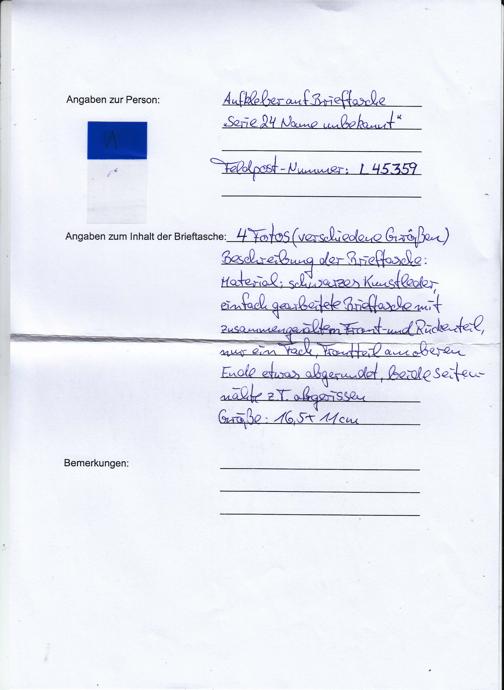 Angaben zur Person: Aufkleber auf Brieftasche
„Serie 24 Name unbekannt“
Feldpost-Nummer: L 45359
Angaben zum Inhalt der Brieftasche: 4 Fotos (verschiedene Größen)
Beschreibung der Brieftasche:
Material: schwarzes Kunstleder,
einfach gearbeitete Brieftasche mit
zusammengenähtem Front- und Rückenteil,
nur ein Fach, Frontteil am oberen
Ende etwas abgerundet, beide Seiten-
nähte z.T. abgerissen
Größe: 16,5 + 11cm
Bemerkungen: